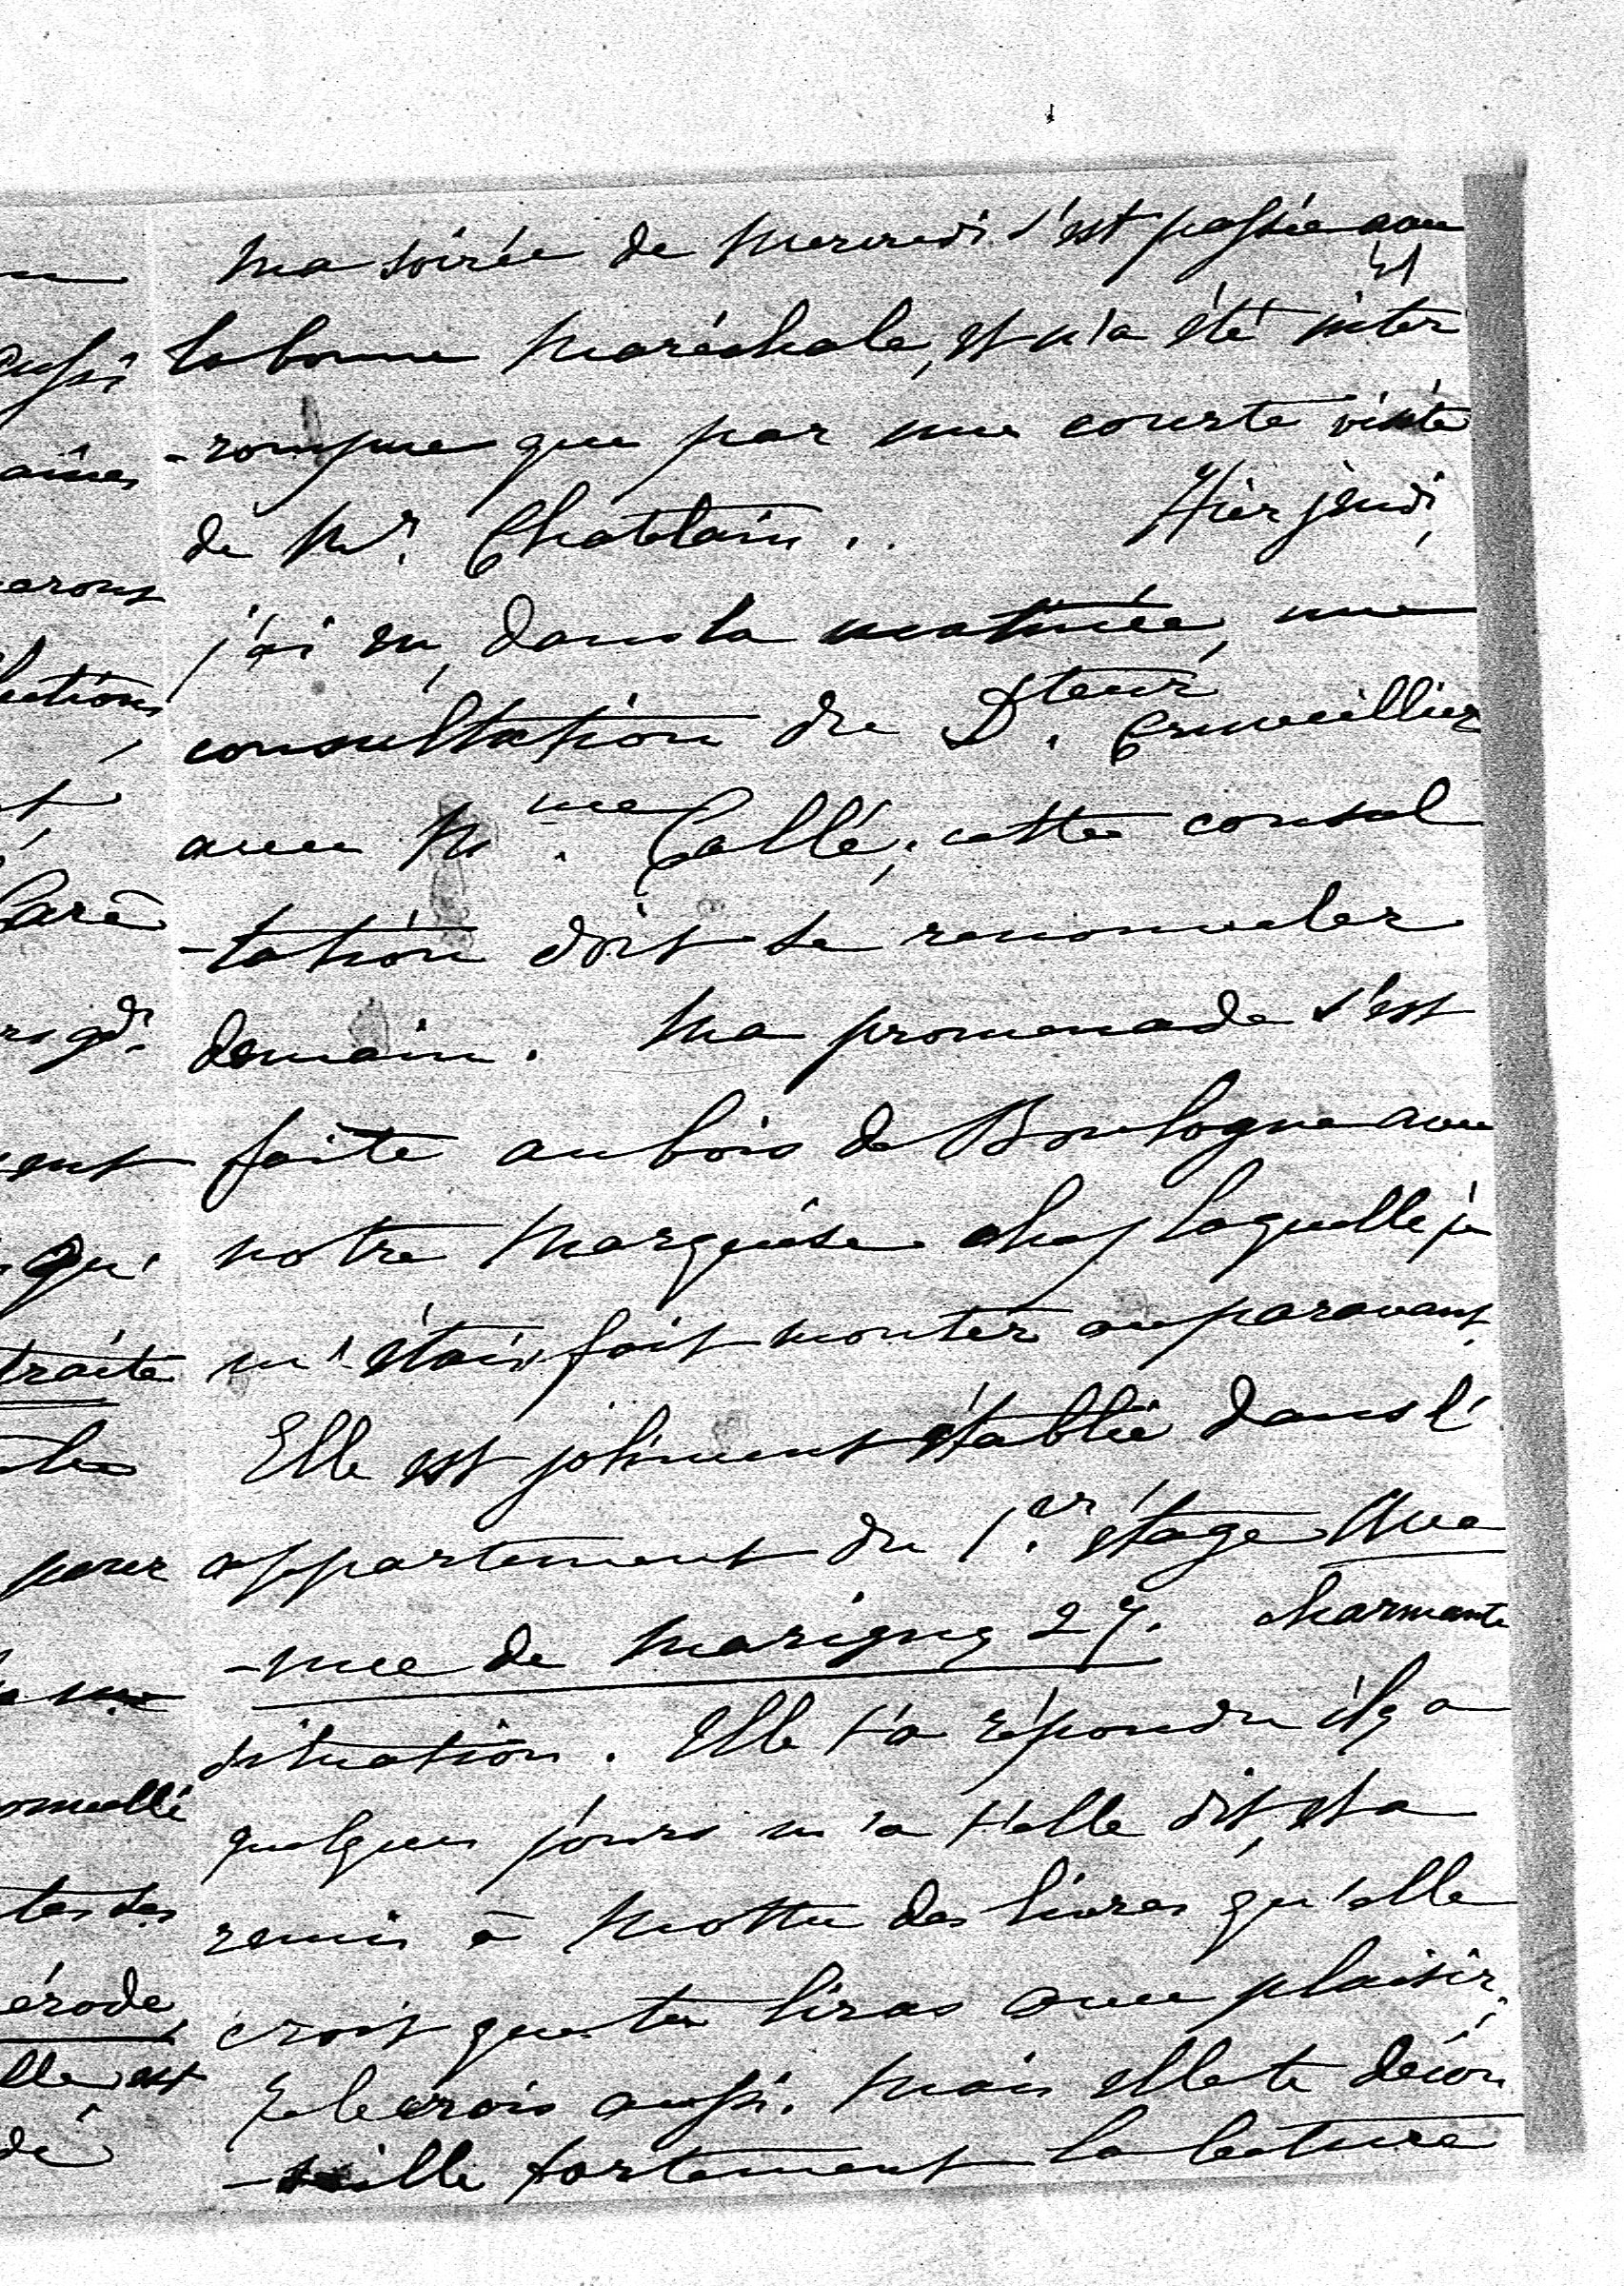 Ma soirée de Mercredi s'est passée avec
la bonne Maréchale, et n'a été inter
-rompue que par une courte visite
de Mr. Chatelain.. Hier jeudi,
j'ai eu, dans la matinée, une
consultation du Dteur. Cruveillier
avec Mme. Callé, cette consul
-tation doit se renouveler
demain. Ma promenade s'est
faite au bois de Boulogne avec
notre Marquise chez laquelle je
m'étais fait monter auparavant.
Elle est joliment établie dans l'
appartement du 1.er étage Ave
-nue de Marigny 27. charmante
situation. Elle t'a répondu il y a
quelques jours m'a t'elle dit, et a
remis à Mottu des livres qu'elle
croit que tu liras avec plaisir;
Je le crois aussi. Mais elle te décon
-seille fortement la lecture
ussi
aines
erons
lections
Carê
ent
qu'
traite
les
pour
érode,
lle est
dé